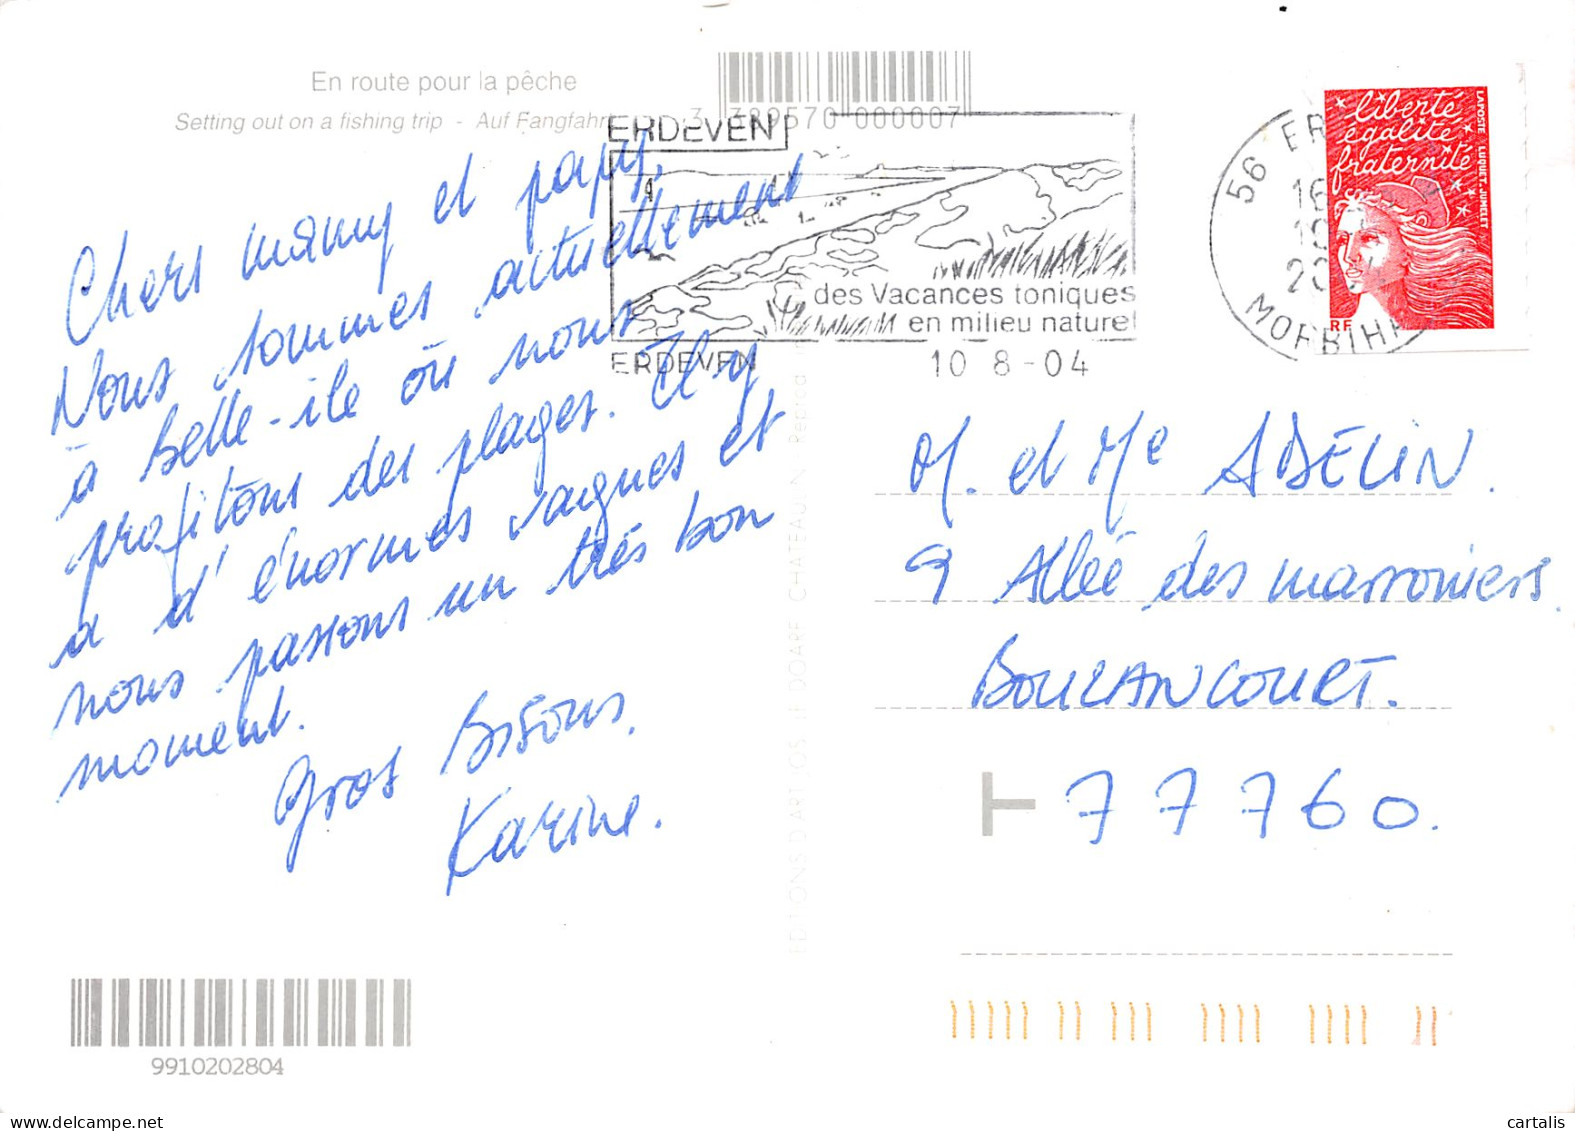 En route pour la pêche
Setting out on a fishing trip - Auf Fangfahrt
3 389570 000007
Chers mamy et papy,
Nous sommes actuellement
à Belle-ile où nous
profitons des plages. Il y
a d'énormes vagues et
nous passons un très bon
moment.
Gros Bisous.
Karine.
9910202804
EDITIONS D'ART JOS LE DOARE CHATEAULIN Reprod
ERDEVEN
des Vacances toniques
en milieu naturel
ERDEVEN
10 8-04
56 ER
16
10
20
MORBIHAN
liberté
égalité
fraternité
RF
LAPOSTE LUQUET JUMELET
M. et Me ADELIN.
9 Allée des marroniers.
BOULANCOURT.
77760.
cartalis